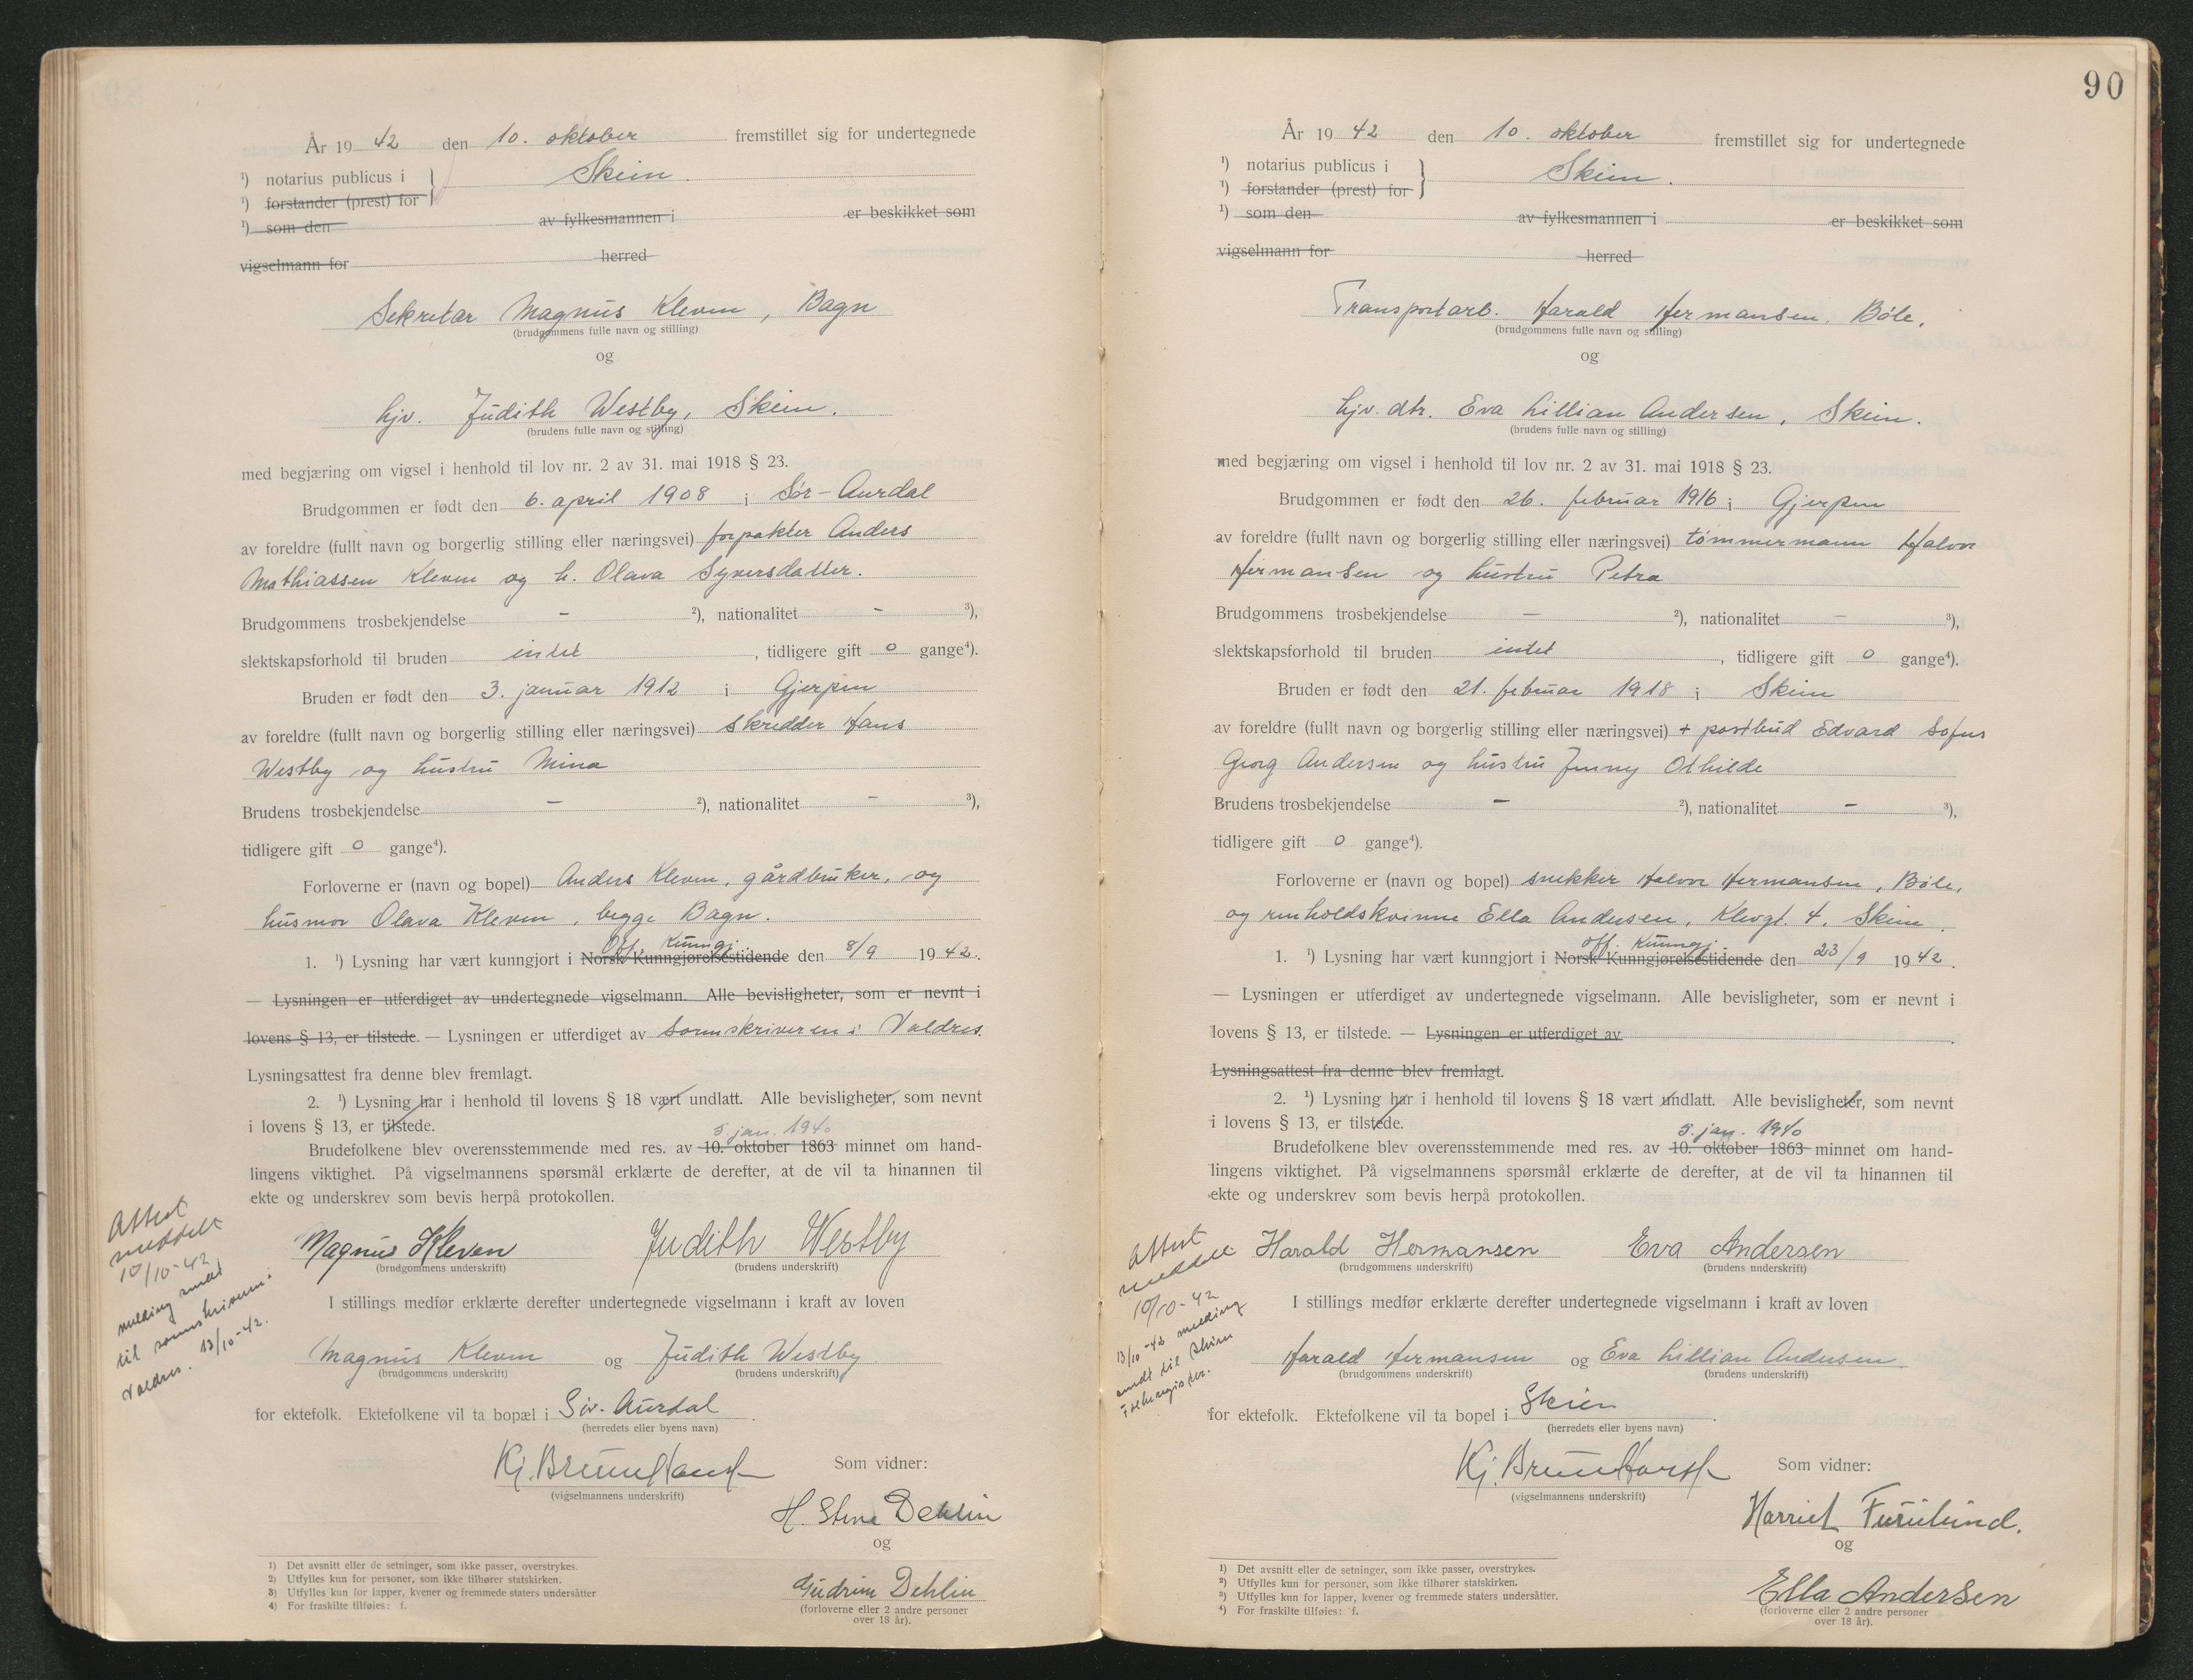 År 19 42 den 10. oktober fremstillet sig for undertegnede
¹) notarius publicus i } Skien.
¹) forstander (prest) for
¹) som den av fylkesmannen i er beskikket som
vigselmann for herred
Sekretær Magnus Kleven, Bagn
(brudgommens fulle navn og stilling)
og
hjv. Judith Westby, Skien.
(brudens fulle navn og stilling)
med begjæring om vigsel i henhold til lov nr. 2 av 31. mai 1918 § 23.
Brudgommen er født den 6. april 1908 i Sør-Aurdal
av foreldre (fullt navn og borgerlig stilling eller næringsvei) forpakter Anders
Mathiassen Kleven og h. Olava Syversdatter.
Brudgommens trosbekjendelse - ²), nationalitet - ³),
slektskapsforhold til bruden intet , tidligere gift 0 gange⁴).
Bruden er født den 3. januar 1912 i Gjerpen
av foreldre (fullt navn og borgerlig stilling eller næringsvei) skredder Hans
Westby og hustru Mina
Brudens trosbekjendelse - ²), nationalitet - ³),
tidligere gift 0 gange⁴).
Forloverne er (navn og bopel) Anders Kleven, gårdbruker, og
husmor Olava Kleven, begge Bagn.
Off. Kunngj.
1. ¹) Lysning har vært kunngjort i Norsk Kunngjørelsestidende den 8/9 19 42.
— Lysningen er utferdiget av undertegnede vigselmann. Alle bevisligheter, som er nevnt i
lovens § 13, er tilstede. — Lysningen er utferdiget av Sorenskriveren i Valdres.
Lysningsattest fra denne blev fremlagt.
2. ¹) Lysning har i henhold til lovens § 18 vært undlatt. Alle bevisligheter, som nevnt
i lovens § 13, er tilstede.
5. jan. 1940
Brudefolkene blev overensstemmende med res. av 10. oktober 1863 minnet om hand-
lingens viktighet. På vigselmannens spørsmål erklærte de derefter, at de vil ta hinannen til
ekte og underskrev som bevis herpå protokollen.
Attest
meddelt
10/10-42
melding sendt
til sorenskriveren i
Valdres. 13/10-42.
Magnus Kleven Judith Westby
(brudgommens underskrift) (brudens underskrift)
I stillings medfør erklærte derefter undertegnede vigselmann i kraft av loven
Magnus Kleven og Judith Westby
(brudgommens underskrift) (brudens underskrift)
for ektefolk. Ektefolkene vil ta bopæl i Sør-Aurdal.
(herredets eller byens navn)
Kj. Bruun Hanst
(vigselmannens underskrift)
Som vidner:
H. Stene Dehlin
og
Gudrun Dehlin
(forloverne eller 2 andre personer
over 18 år).
1) Det avsnitt eller de setninger, som ikke passer, overstrykes.
2) Utfylles kun for personer, som ikke tilhører statskirken.
3) Utfylles kun for lapper, kvener og fremmede staters undersåtter
4) For fraskilte tilføies: f.
90
År 19 42 den 10. oktober fremstillet sig for undertegnede
¹) notarius publicus i } Skien.
¹) forstander (prest) for
¹) som den av fylkesmannen i er beskikket som
vigselmann for herred
Transportarb. Harald Hermansen, Bøle,
(brudgommens fulle navn og stilling)
og
hjv. dtr. Eva Lillian Andersen, Skien.
(brudens fulle navn og stilling)
med begjæring om vigsel i henhold til lov nr. 2 av 31. mai 1918 § 23.
Brudgommen er født den 26. februar 1916 i Gjerpen
av foreldre (fullt navn og borgerlig stilling eller næringsvei) tømmermann Halvor
Hermansen og hustru Petra
Brudgommens trosbekjendelse — ²), nationalitet — ³),
slektskapsforhold til bruden intet , tidligere gift 0 gange⁴).
Bruden er født den 21. februar 1918 i Skien
av foreldre (fullt navn og borgerlig stilling eller næringsvei) + postbud Edvard Sofus
Georg Andersen og hustru Jenny Othilde
Brudens trosbekjendelse - ²), nationalitet - ³),
tidligere gift 0 gange⁴).
Forloverne er (navn og bopel) snekker Halvor Hermansen, Bøle,
og renholdskvinne Ella Andersen, Klevgt. 4, Skien.
off. Kunngj.
1. ¹) Lysning har vært kunngjort i Norsk Kunngjørelsestidende den 23/9 19 42.
— Lysningen er utferdiget av undertegnede vigselmann. Alle bevisligheter, som er nevnt i
lovens § 13, er tilstede. — Lysningen er utferdiget av .
Lysningsattest fra denne blev fremlagt.
2. ¹) Lysning har i henhold til lovens § 18 vært undlatt. Alle bevisligheter, som nevnt
i lovens § 13, er tilstede.
5. jan. 1940
Brudefolkene blev overensstemmende med res. av 10. oktober 1863 minnet om hand-
lingens viktighet. På vigselmannens spørsmål erklærte de derefter, at de vil ta hinannen til
ekte og underskrev som bevis herpå protokollen.
Attest
meddelt
10/10-42
13/10-42 melding
sendt til Skien
Folkeregister.
Harald Hermansen Eva Andersen
(brudgommens underskrift) (brudens underskrift)
I stillings medfør erklærte derefter undertegnede vigselmann i kraft av loven
Harald Hermansen og Eva Lillian Andersen
(brudgommens underskrift) (brudens underskrift)
for ektefolk. Ektefolkene vil ta bopel i Skien.
(herredets eller byens navn)
Kj. Bruun Hanst
(vigselmannens underskrift)
Som vidner:
Harriet Furulund.
og
Ella Andersen
(forloverne eller 2 andre personer
over 18 år).
¹) Det avsnitt eller de setninger, som ikke passer, overstrykes.
²) Utfylles kun for personer, som ikke tilhører statskirken.
³) Utfylles kun for lapper, kvener og fremmede staters undersåtter.
⁴) For fraskilte tilføies: f.